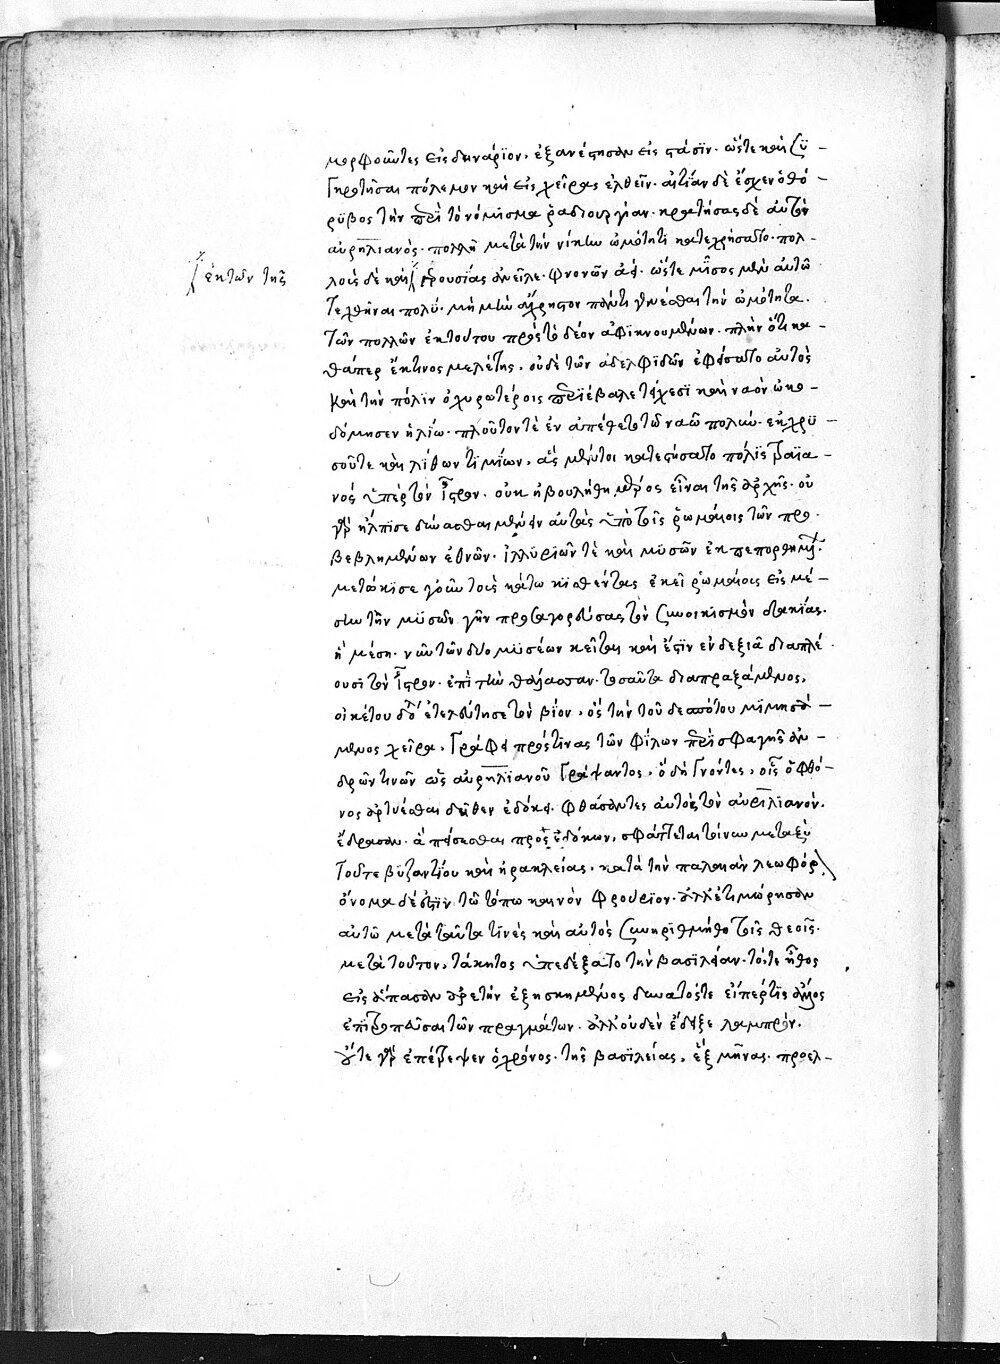 μορφοῦντες εἰς δηνάριον, ἐξανέστησαν εἰς στάσϊν. ὥστε καὶ ξϋ –
γκροτῆσαι πόλεμον καὶ εἰς χεῖρας ἐλθεῖν. αἰτίαν δὲ ἔσχεν ὁ θό –
ρϋβος τὴν περὶ τὸ νόμισμα ῥαδιουργίαν. κρατήσας δὲ αὐτῶν
αὐρηλιανὸς. πολλῇ μετὰ τὴν νίκην ὠμότητι κατεχρήσατο. πολ –
λοὺς δὲ καὶ γερουσίας ἀνεῖλε. φρονῶν ἀεί. ὥστε μῖσος μὲν αὐτῶ
ἐκ τῶν τῆς
τεχθῆναι πολύ. μὴ μὴν ἄχρηστον πάντη γενέσθαι τὴν ὠμότητα.
τῶν πολλῶν ἐκ τούτου πρὸς τὸ δέον ἀφϊκνουμένων. πλὴν ὅτι κα –
θάπερ ἔκ τινος μελέτης, οὐδὲ τῶν ἀδελφϊδῶν ἐφείσατο αὐτὸς
καὶ τὴν πόλϊν ὀχυρωτέροις περϊέβαλε τείχεσϊ καὶ ναὸν ὠκο –
δόμησεν ἡλίω. πλοῦτον τὲ ἐν ἀπέθετο τῶ ναῶ πολύν. ἐκ χρϋ –
σοῦ τε καὶ λίθων τϊμίων, ἃς μέντοι κατεστήσατο πόλϊς τραϊα –
νὸς ὑπὲρ τὸν ἴστρον. οὐκ ἠβουλήθη μέρος εἶναι τῆς ἀρχῆς. οὐ
γὰρ ἤλπϊσε δύνασθαι μένειν αὐτὰς ὑπὸ τοῖς ῥωμαίοις τῶν προ.
βεβλημένων ἐθνῶν. ἰλλϋριῶν τὲ καὶ μϋσῶν ἐκπεπορθημέ.
μετώκϊσε γοῦν τοὺς κάτω κϊσθέντας ἐκεῖ ῥωμαίους εἰς μέ –
σην τὴν μϋσῶν γῆν προσαγορεύσας τὸν ξυνοικισμὸν δακίας.
ἡ μέση. νῦν τῶν δύο μϋσέων κεῖται καὶ ἔστϊν ἐν δεξιᾶ διαπλέ
ουσι τὸν ἴστρον. ἐπὶ τὴν θάλασσαν. τοσαῦτα διαπραξάμενος,
οἰκέτου δόλω ἐτελεύτησε τὸν βίον, ὃς τὴν τοῦ δεσπότου μϊμησά –
μενος χεῖρα, γράφει πρός τϊνας τῶν φίλων περὶ σφαγῆς ἀν –
δρῶν τινῶν ὡς αὐρηλϊανοῦ γράψαντος, ὃ δὴ γνόντες, οἷς ὁ φθό –
νος ἀρτύεσθαι δῆθεν ἐδόκει. φθάσαντες αὐτὸς τὸν αὐρηλϊανόν.
ἔδρασαν. ἃ πείσεσθαι πρὸς ἐδόκων, σφάττεται τοίνυν μεταξὺ
τοῦ τε βϋζαντίου καὶ ἡρακλείας, κατὰ τὴν παλαιὰν λεωφόρ
ὄνομα δέ ἐστϊν τῶ τόπω καινὸν φρούριον. ἀλλ' ἐτιμώρησαν
αὐτῶ μετὰ ταῦτα τϊνὲς καὶ αὐτὸς ξυνηρϊθμήθη τοῖς θεοῖς.
μετὰ τοῦτον, τάκητος ὑπεδέξατο τὴν βασϊλείαν. τό, τε ἦθος
εἰς ἅπασαν ἀρετὴν ἐξησκημένος δυνατός τε εἴπερ τϊς ἄλλος
ἐπϊτροπεῦσαι τῶν πραγμάτων. ἀλλ' οὐδὲν ἔδειξε λαμπρόν.
οὔτε γὰρ ἐπέτρεψεν ὁ χρόνος. τῆς βασϊλείας, ἓξ μῆνας. προελ –